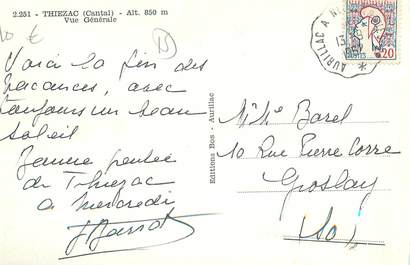 2.251 - THIEZAC (Cantal) - Alt. 850 m
Vue Générale
10 €
Voici la fin des
vacances, avec
toujours un beau
soleil
Bonne pensée
de Thiézac
a mercredi
Editions Bos - Aurillac
AURILLAC A
13
1962
0,20
Mlle Barel
10 Rue Pierre Corre
Groslay